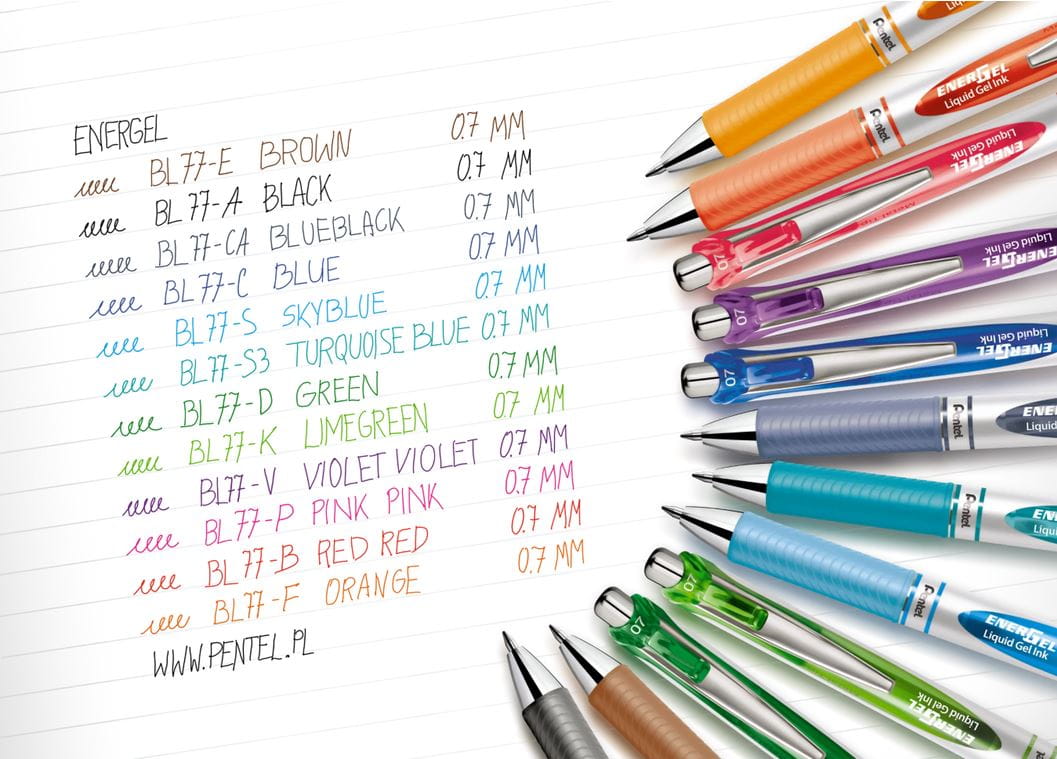 ENERGEL
BL77-E BROWN 0.7 MM
BL77-A BLACK 0.7 MM
BL77-CA BLUEBLACK 0.7 MM
BL77-C BLUE 0.7 MM
BL77-S SKYBLUE 0.7 MM
BL77-S3 TURQUOISE BLUE 0.7 MM
BL77-D GREEN 0.7 MM
BL77-K LIMEGREEN 0.7 MM
BL77-V VIOLET VIOLET 0.7 MM
BL77-P PINK PINK 0.7 MM
BL77-B RED RED 0.7 MM
BL77-F ORANGE 0.7 MM
WWW.PENTEL.PL
Pentel
Pentel
ENERGEL
Liquid Gel Ink
ENERGEL
Liquid Gel Ink
07
ENERGEL
Liquid Gel Ink
07
ENERGEL
Liquid Gel Ink
07
Pentel
Pentel
Pentel
ENERGEL
Liquid Gel Ink
07
ENERGEL
Liquid Gel Ink
07